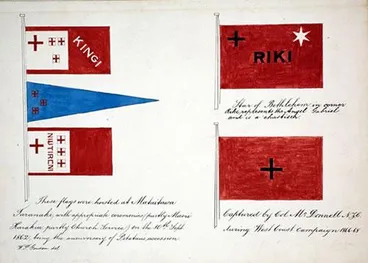 KINGI
NUTIRENI
These flags were hoisted at Mataitawa
Taranaki, with appropriate ceremonies (partly Maori
Karakia, partly Church Service) on the 10th Sept.
1862, being the anniversary of Potatau's accession
RIKI
Star of Bethlehem in corner
Riki represents the Angel Gabriel
and is a
Captured by Col. McDonnell N.Z.C.
during West Coast Campaign 1866-68